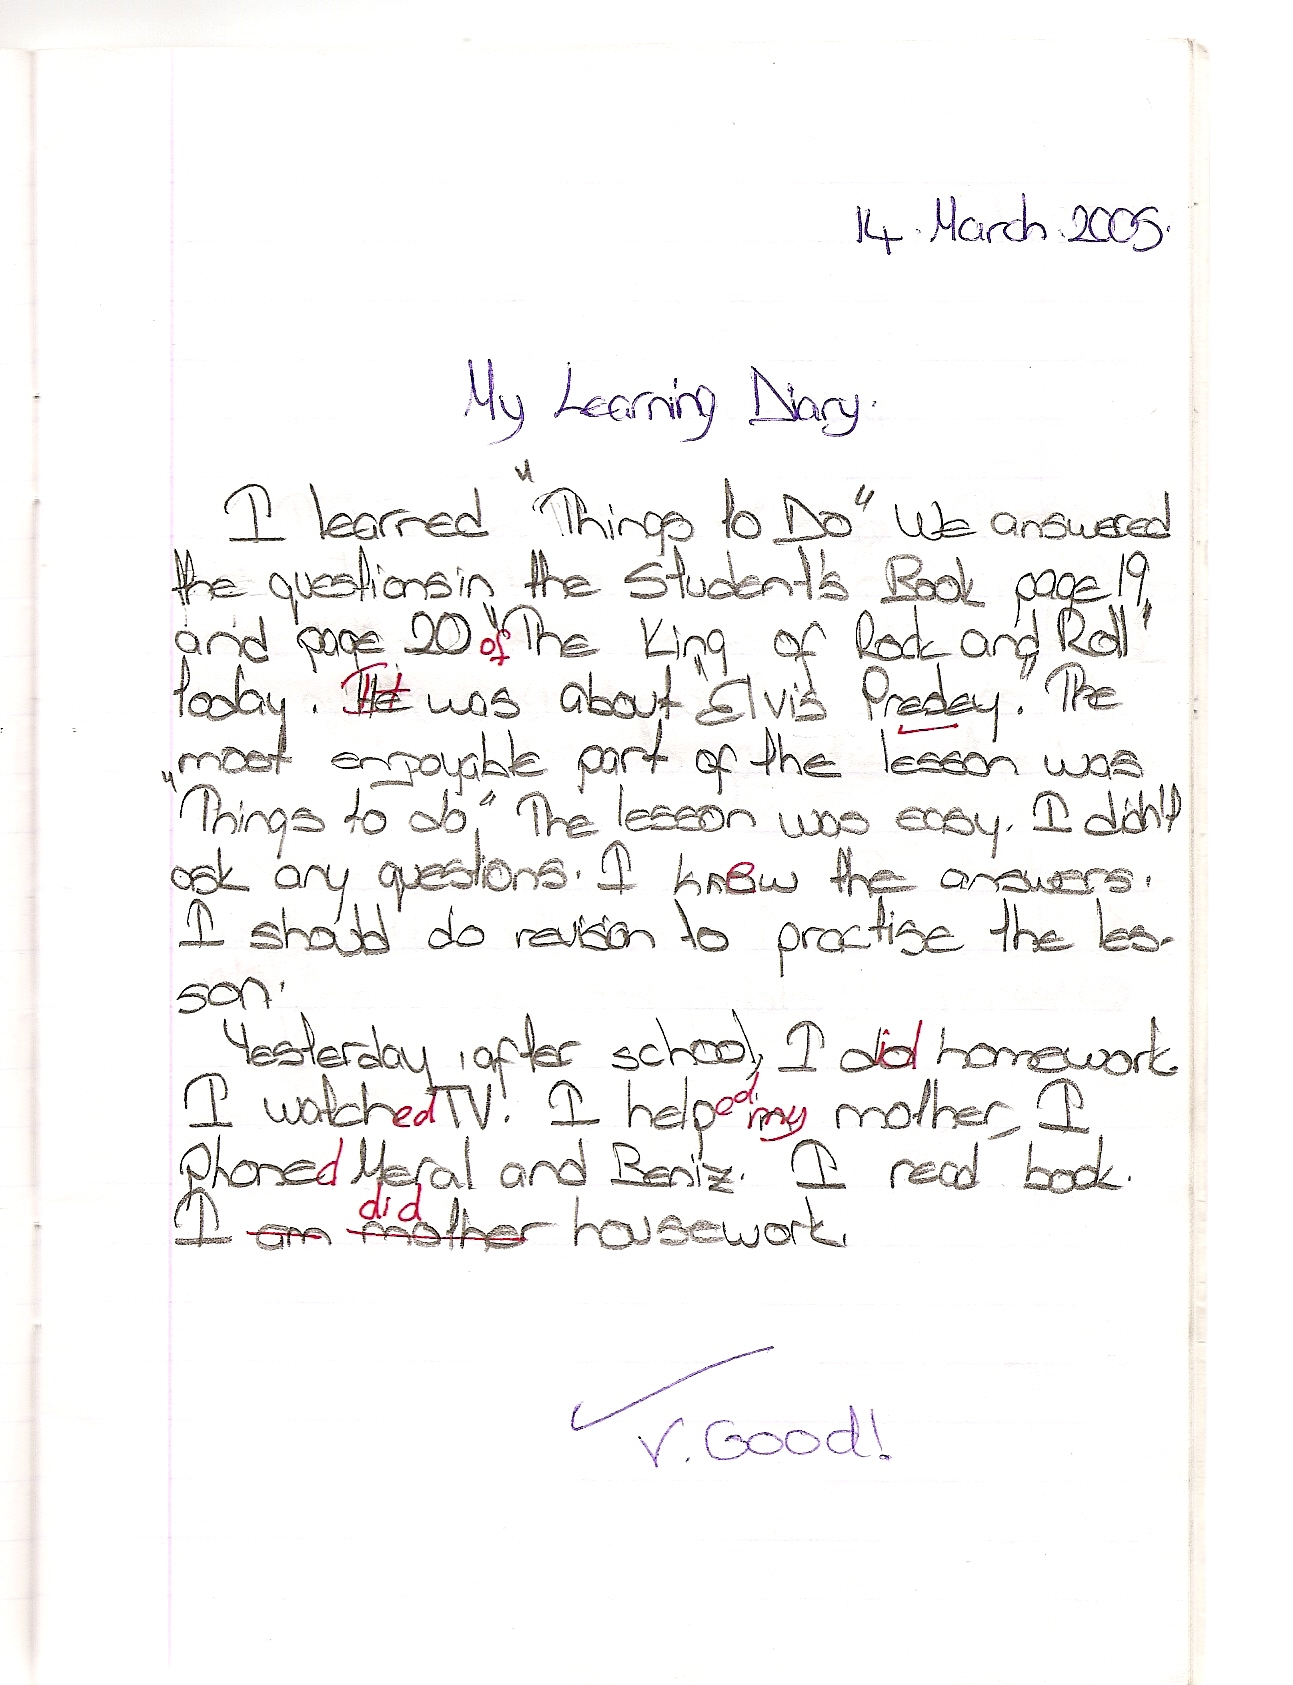 14. March. 2005.
My Learning Diary.
I learned "Things to Do" We answered
the questions in the Student's Book page 19
and page 20 of "The King of Rock and Roll"
today. It was about "Elvis Presley." The
most enjoyable part of the lesson was
"Things to do," The lesson was easy. I didn't
ask any questions. I knew the answers.
I should do revision to practise the les-
son.
Yesterday, after school, I did homework.
I watched TV. I helped my mother, I
phoned Meral and Beniz. I read book.
did
I am mother housework.
V. Good!